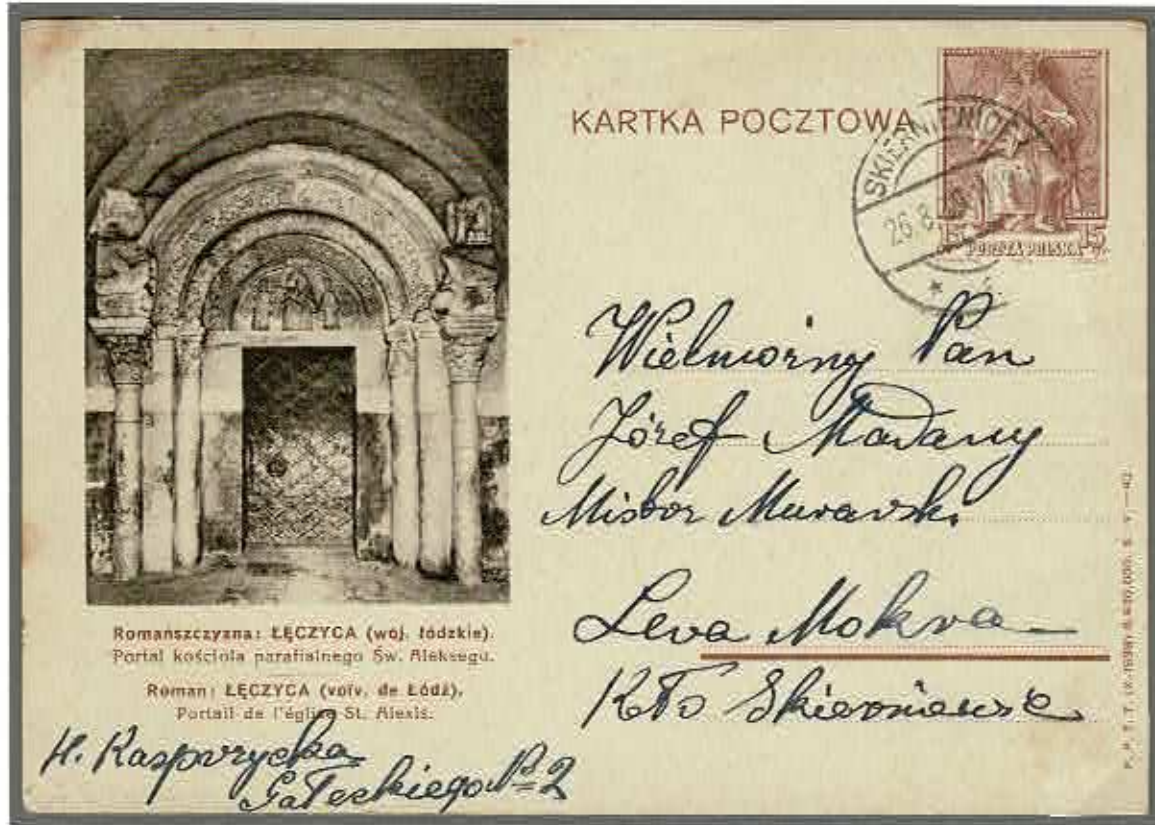 KARTKA POCZTOWA
SKIERNIEWICE
26.8
15 15
POCZTA POLSKA
Wielmorny Pan
Józef Madany
Mistor Muravski
Leva Mokra
K/To Skierniewic
Romańszczyzna: ŁĘCZYCA (woj. łódzkie).
Portal kościoła parafialnego Św. Aleksego.
Roman: ŁĘCZYCA (voïv. de Łódź).
Portail de l'église St. Alexis.
H. Kasprzycka
Gałeckiego № 2